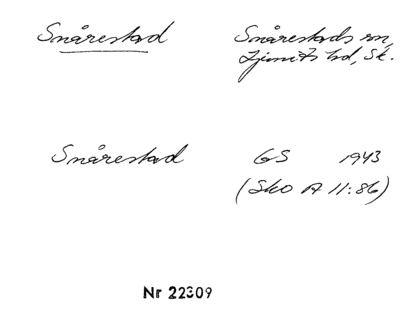 Snårestad
Snårestads sn,
Ljunits hd, Sk.
Snårestad GS 1943
(Sko A 11:86)
Nr 22309